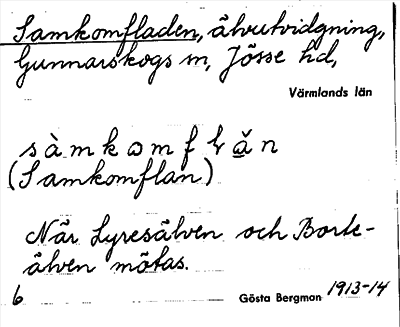 Samkomfladen, älvutvidgning,
Gunnarskogs sn, Jösse hd,
Värmlands län
(Samkomflan)
När Lyresälven och Bork-
älven mötas.
6 Gösta Bergman 1913-14